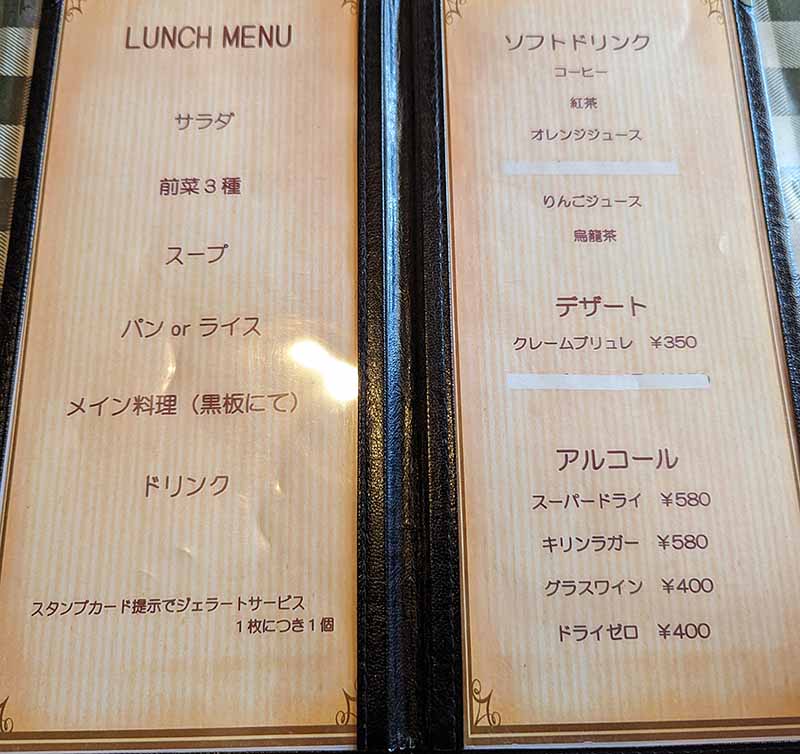 LUNCH MENU
サラダ
前菜3種
スープ
パン or ライス
メイン料理（黒板にて）
ドリンク
スタンプカード提示でジェラートサービス
1枚につき1個
ソフトドリンク
コーヒー
紅茶
オレンジジュース
りんごジュース
烏龍茶
デザート
クレームブリュレ ¥350
アルコール
スーパードライ ¥580
キリンラガー ¥580
グラスワイン ¥400
ドライゼロ ¥400